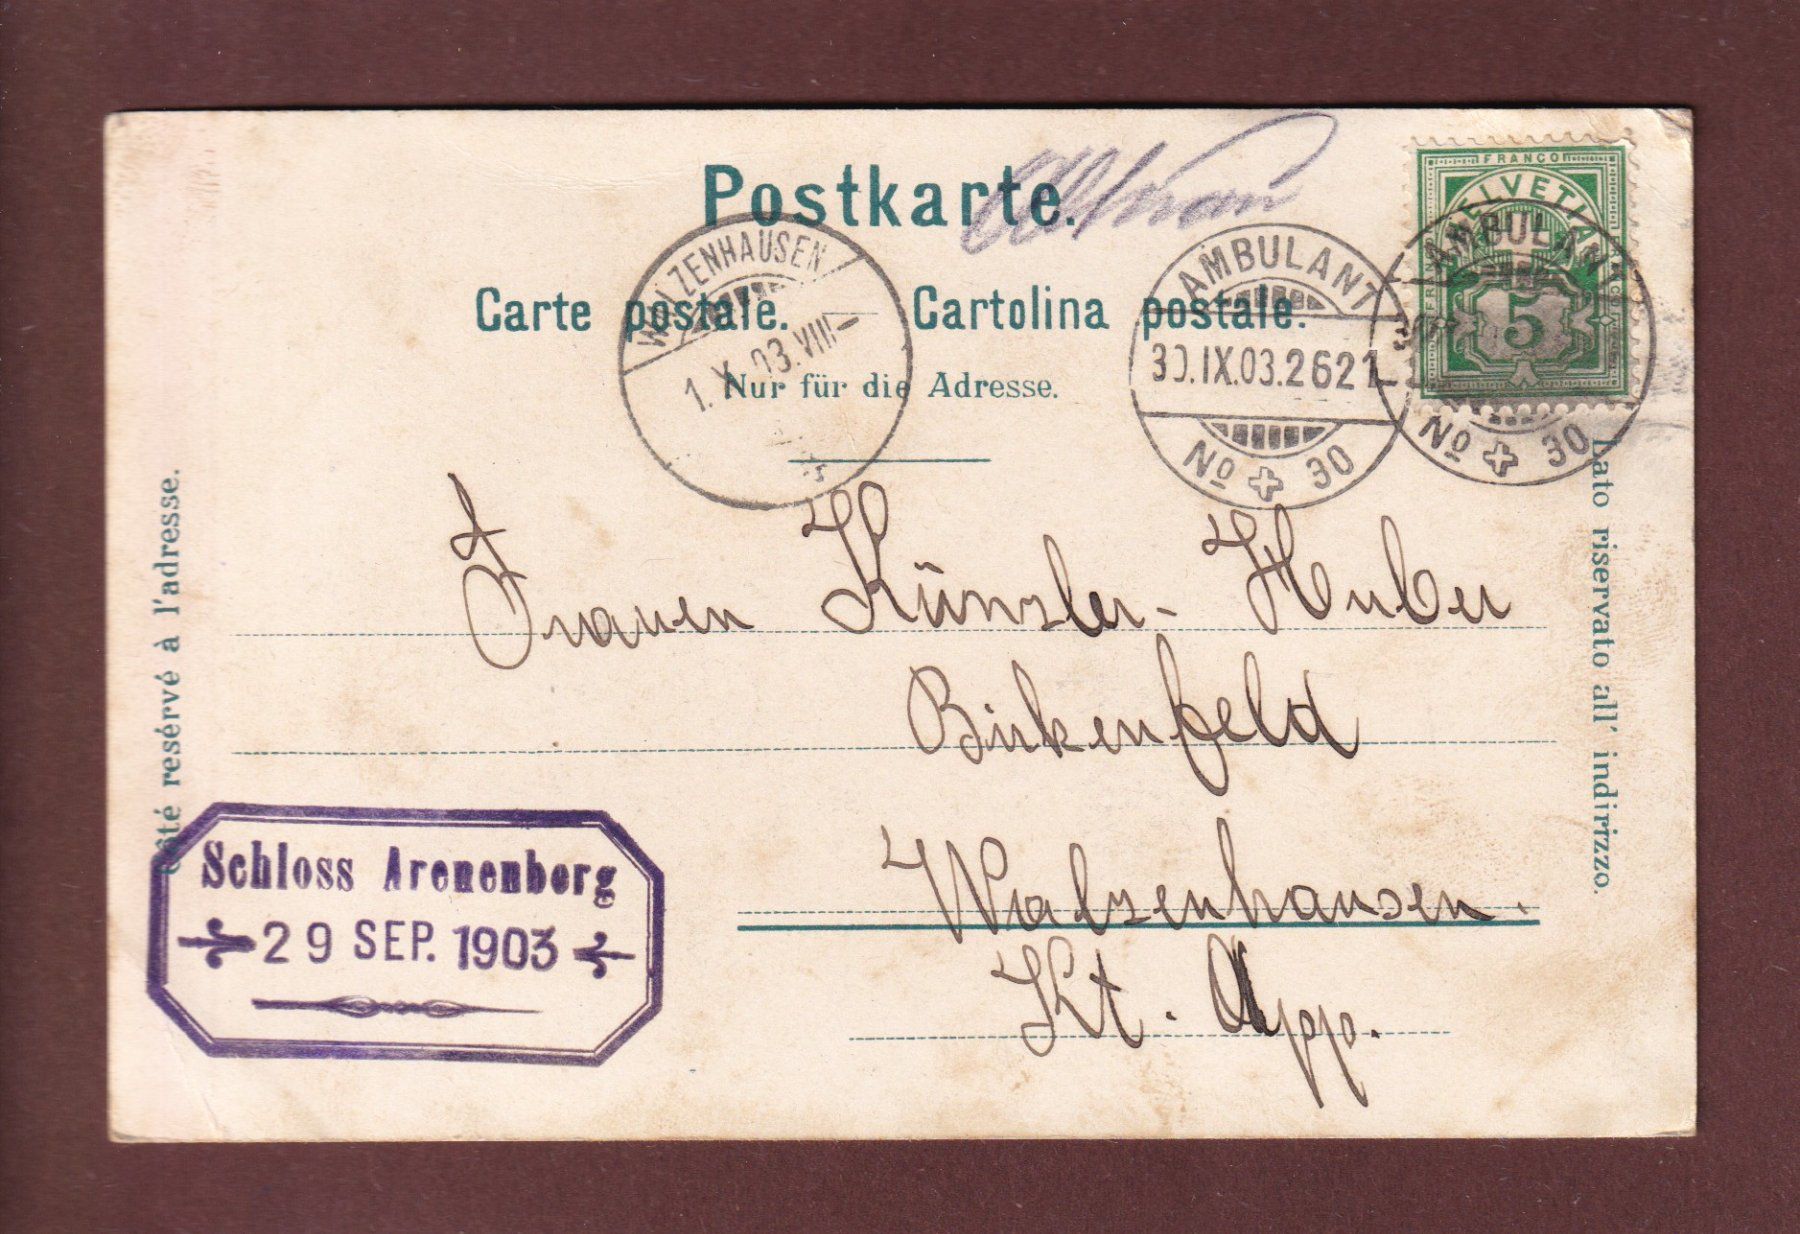 Postkarte.
Carte postale. Cartolina postale.
Nur für die Adresse.
WALZENHAUSEN
1. X. 03. VIII-
AMBULANT
30.IX.03.2621
No 30
FRANCO
HELVETIA
5
AMBULANT
No 30
Frauen Künzler-Huber
Birkenfeld
Walzenhausen.
Kt. App.
Schloss Arenenberg
29 SEP. 1903
Côté resérvé à l'adresse.
Lato riservato all' indirizzo.